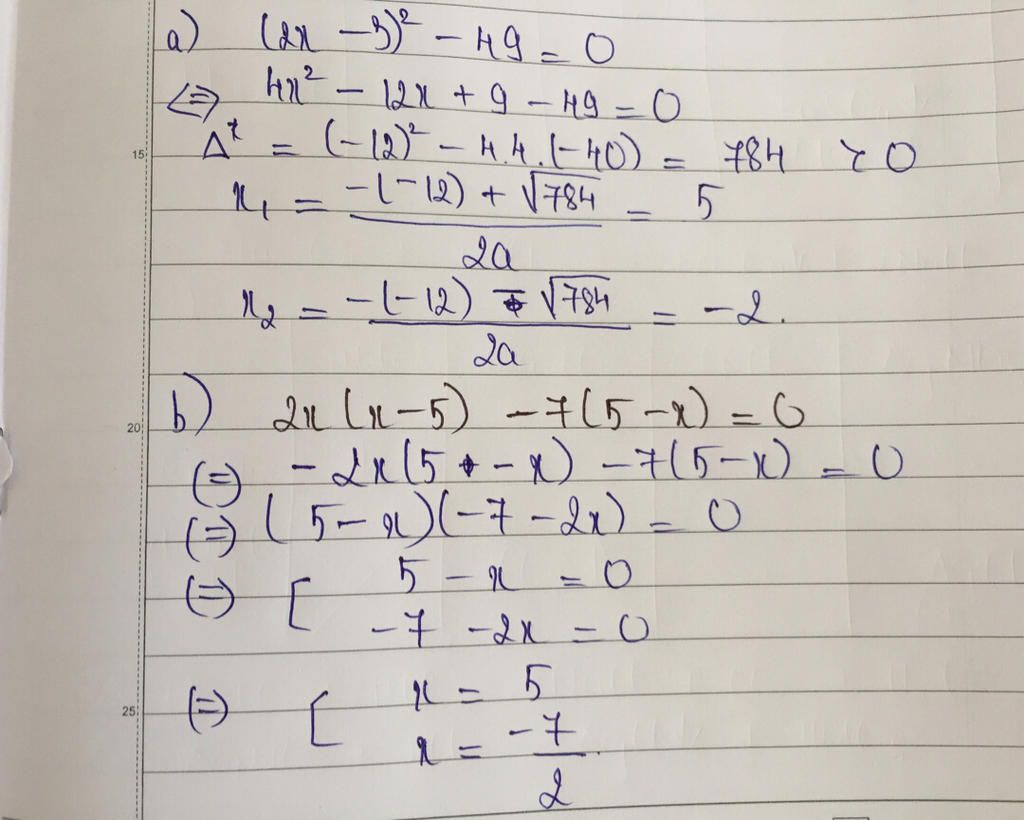 a) (2x - 3)² - 49 = 0
<=> 4x² - 12x + 9 - 49 = 0
Δ* = (-12)² - 4.4.(-40) = 784 > 0
x₁ = (-(-12) + √784) / 2a = 5
x₂ = (-(-12) - √784) / 2a = -2.
b) 2x (x - 5) - 7(5 - x) = 0
20
(=) - 2x(5 - x) - 7(5 - x) = 0
(=) (5 - x)(-7 - 2x) = 0
(=) [ 5 - x = 0
-7 - 2x = 0
25
(=) [ x = 5
x = -7/2.
15